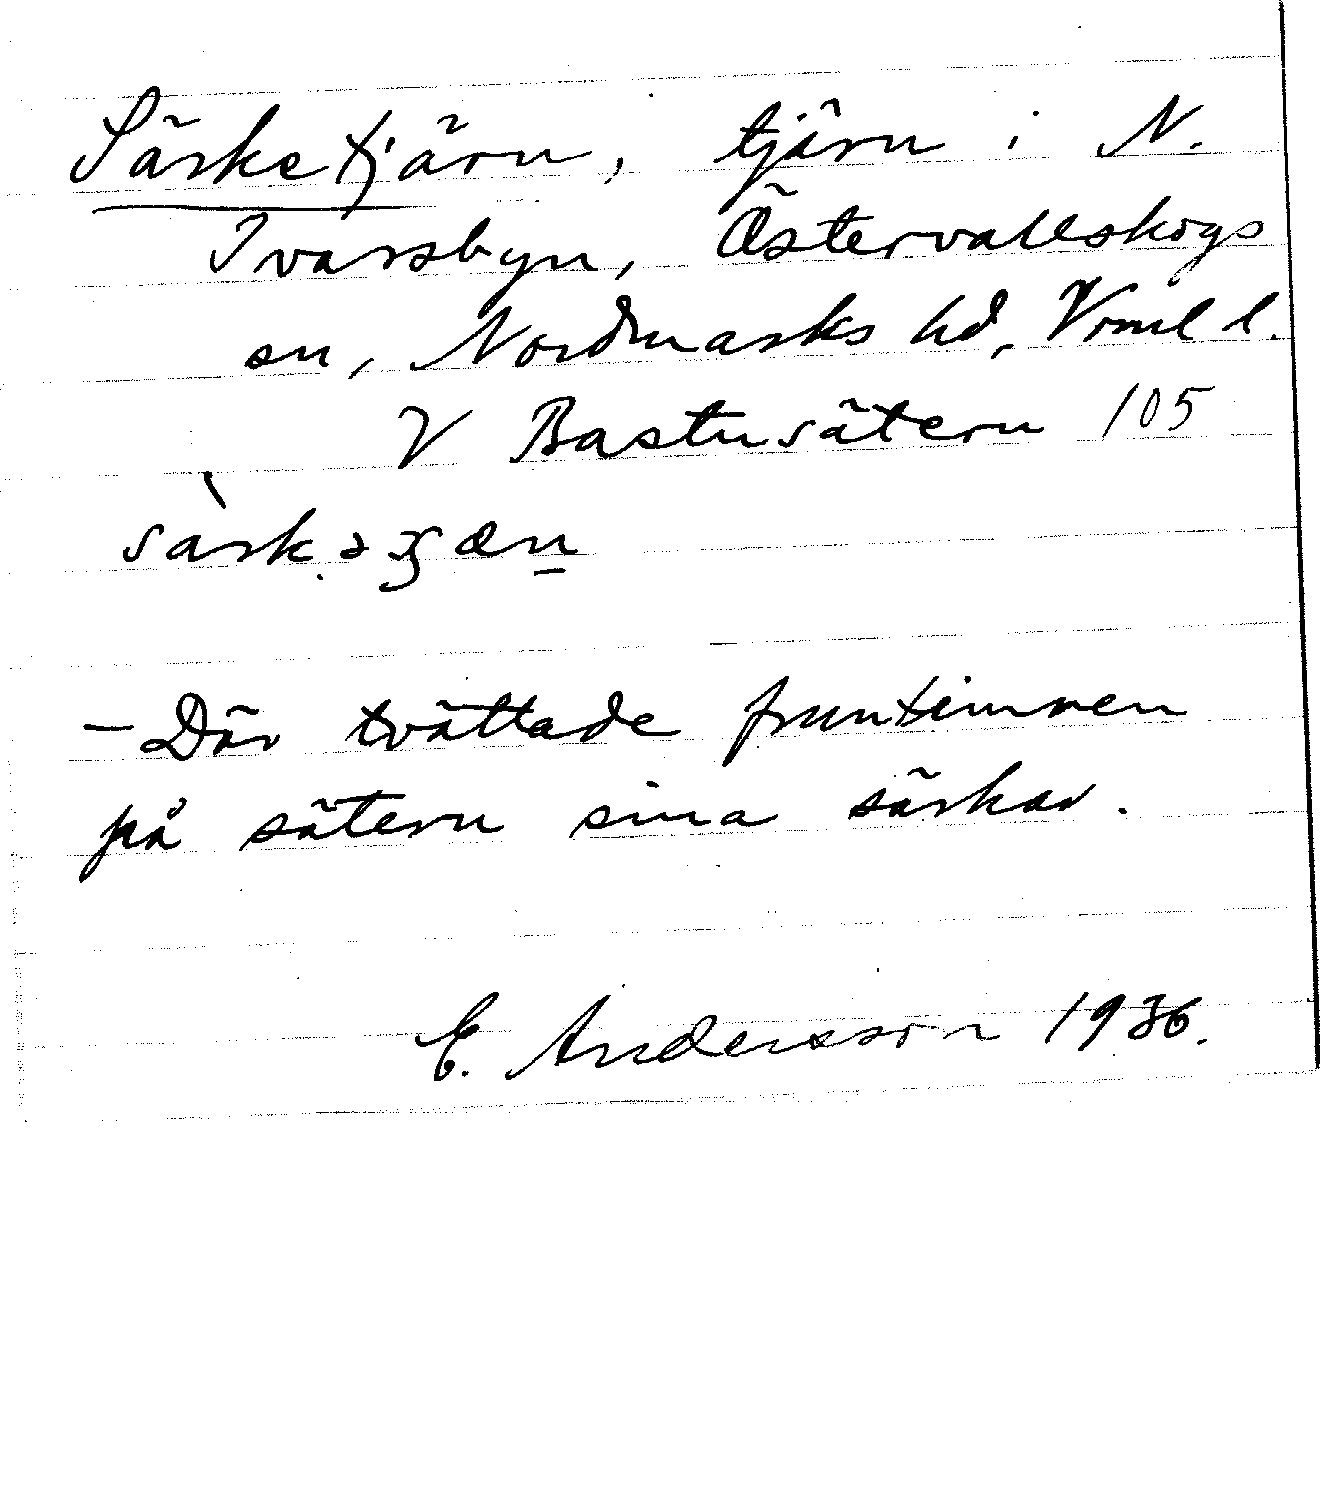 Särketjärn, tjärn i N.
Ivarsbyn, Östervallskogs
sn, Nordmarks hd, Vrml l.
V Bastusätern 105
sàrkəʒæn
– Där tvättade fruntimren
på sätern sina särkar.
E. Andersson 1936.